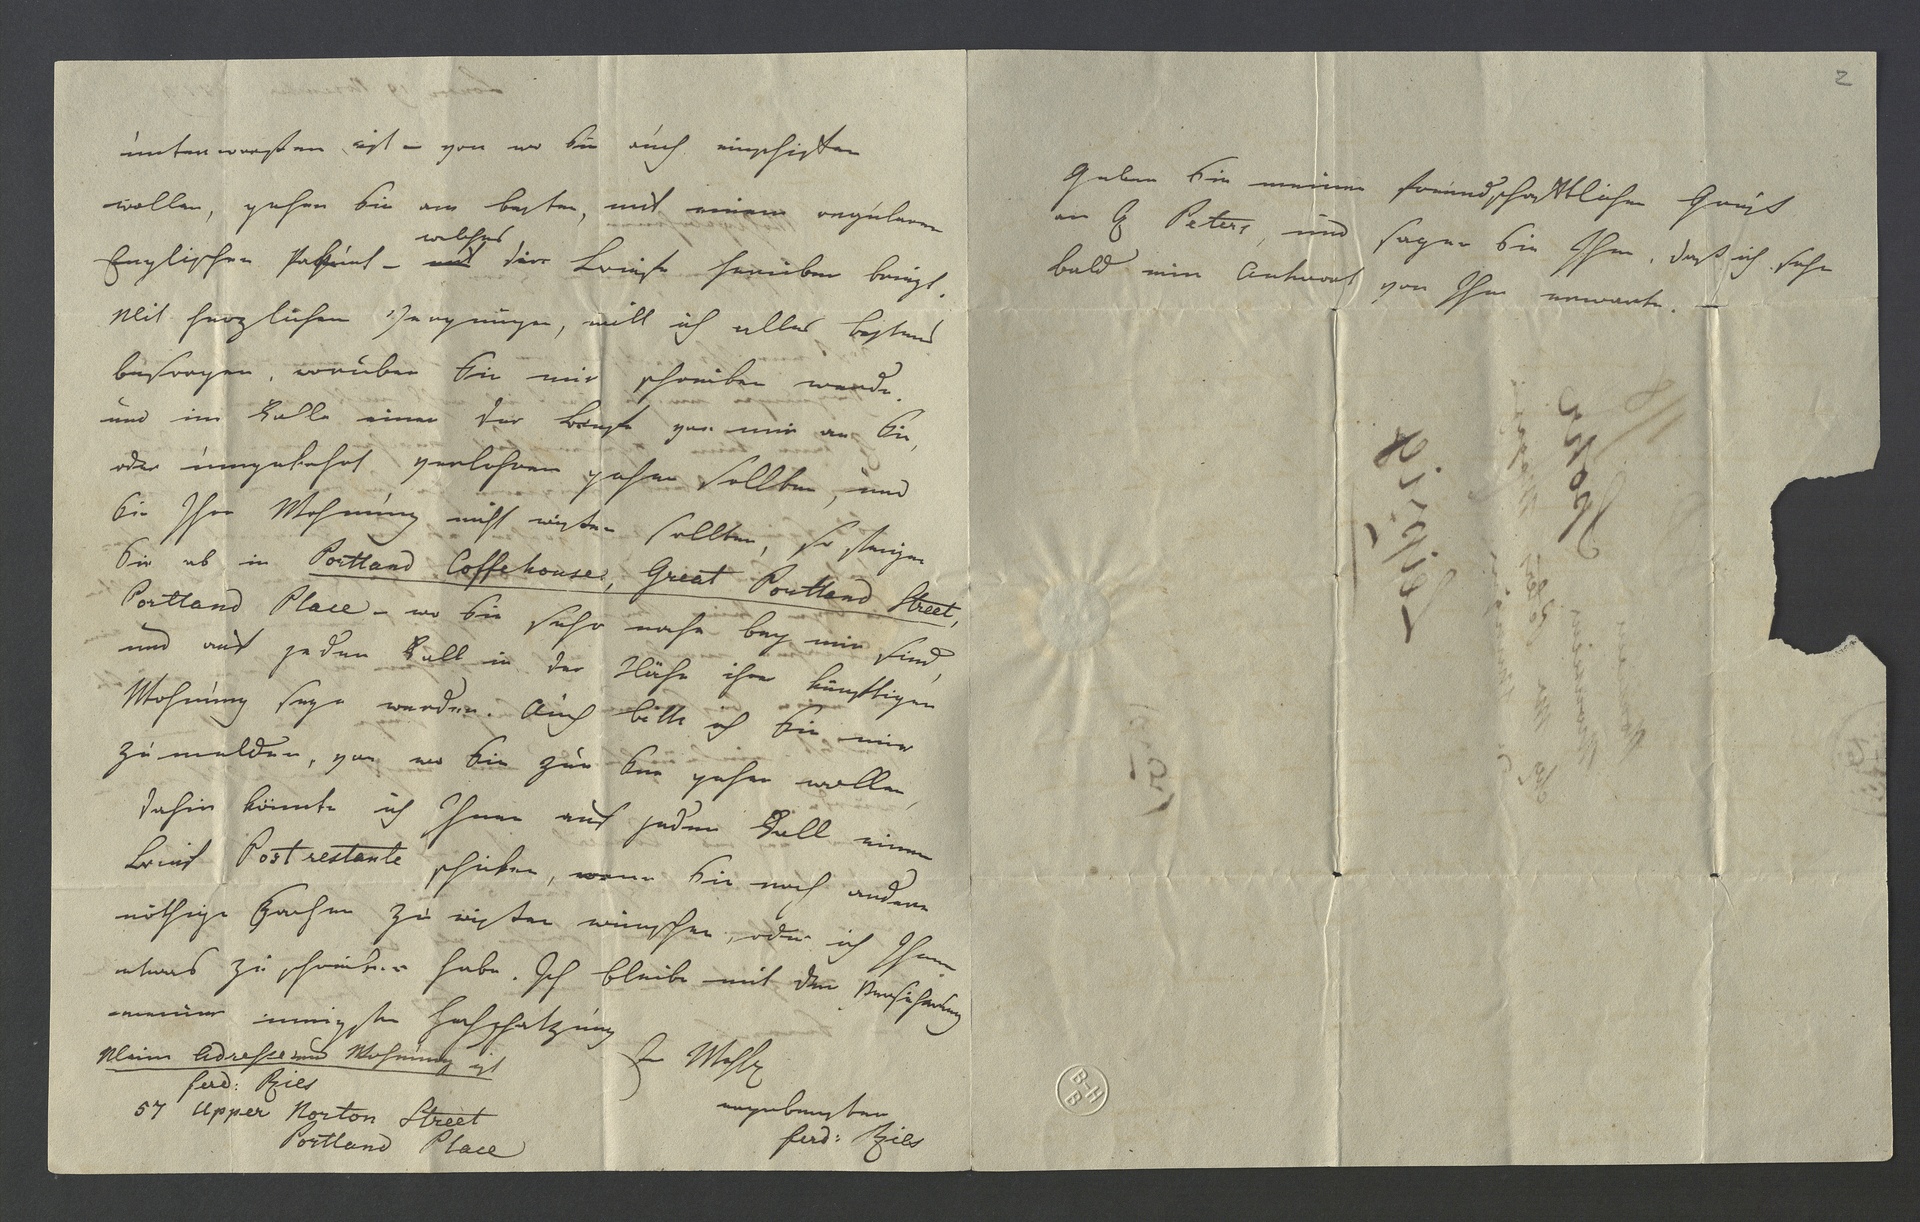 unterworfen ist – von wo Sie auch einschiffen
wollen, gehen Sie am besten, mit einem regulären
Englischen Paketboot – welches die Briefe herüber bringt.
Mit herzlichen Vergnügen, will ich alles bestens
besorgen, worüber Sie mir schreiben werden.
und im Falle einer der Briefe von mir an Sie,
oder umgekehrt verlohren gehen sollten, und
Sie Ihre Wohnung nicht wissten sollten, so steigen
Sie ab in Portland Coffehouse, Great Portland Street,
Portland Place – wo Sie sehr nahe bey mir sind,
und auf jeden Fall in der Nähe ihrer künftigen
Wohnung seyn werden. Auch bitte ich Sie mir
zu melden, von wo Sie zur See gehen wollen,
dahin könnte ich Ihnen auf jeden Fall einen
Brief Post restante schicken, wenn Sie noch andere
nöthige Sachen zu wissen wünschen, oder ich Ihnen
etwas zu schreiben habe. Ich bleibe mit der Versicherung
meiner innigsten Hochschätzung
Ew Wohlg
ergebenster
ferd: Ries
Meine Adresse und Wohnung ist
ferd: Ries
57 Upper Norton Street
Portland Place
2
Geben Sie meinen freundschaftlichen Gruß
an H Peters, und sagen Sie Ihm, daß ich sehr
bald eine Antwort von Ihm erwarte. –
B-H
B